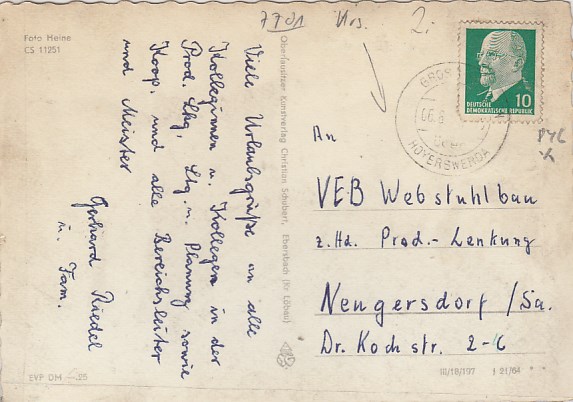 Foto Heine
CS 11251
Viele Urlaubsgrüße an alle
Kolleginnen u. Kollegen in der
Prod. Lkg, Ltg. u. Planung sowie
Koop. und alle Bereichsleiter
und Meister
Gerhard Riedel
u. Fam.
EVP DM —.25
Oberlausitzer Kunstverlag Christian Schubert, Ebersbach (Kr Löbau)
7701
Krs.
2.
10
DEUTSCHE
DEMOKRATISCHE REPUBLIK
GROS
06.8
HOYERSWERDA
An
VEB Webstuhlbau
z. Hd. Prod.- Lenkung
Neugersdorf /Sa.
Dr. Koch str. 2-6
III/18/197 J 21/64